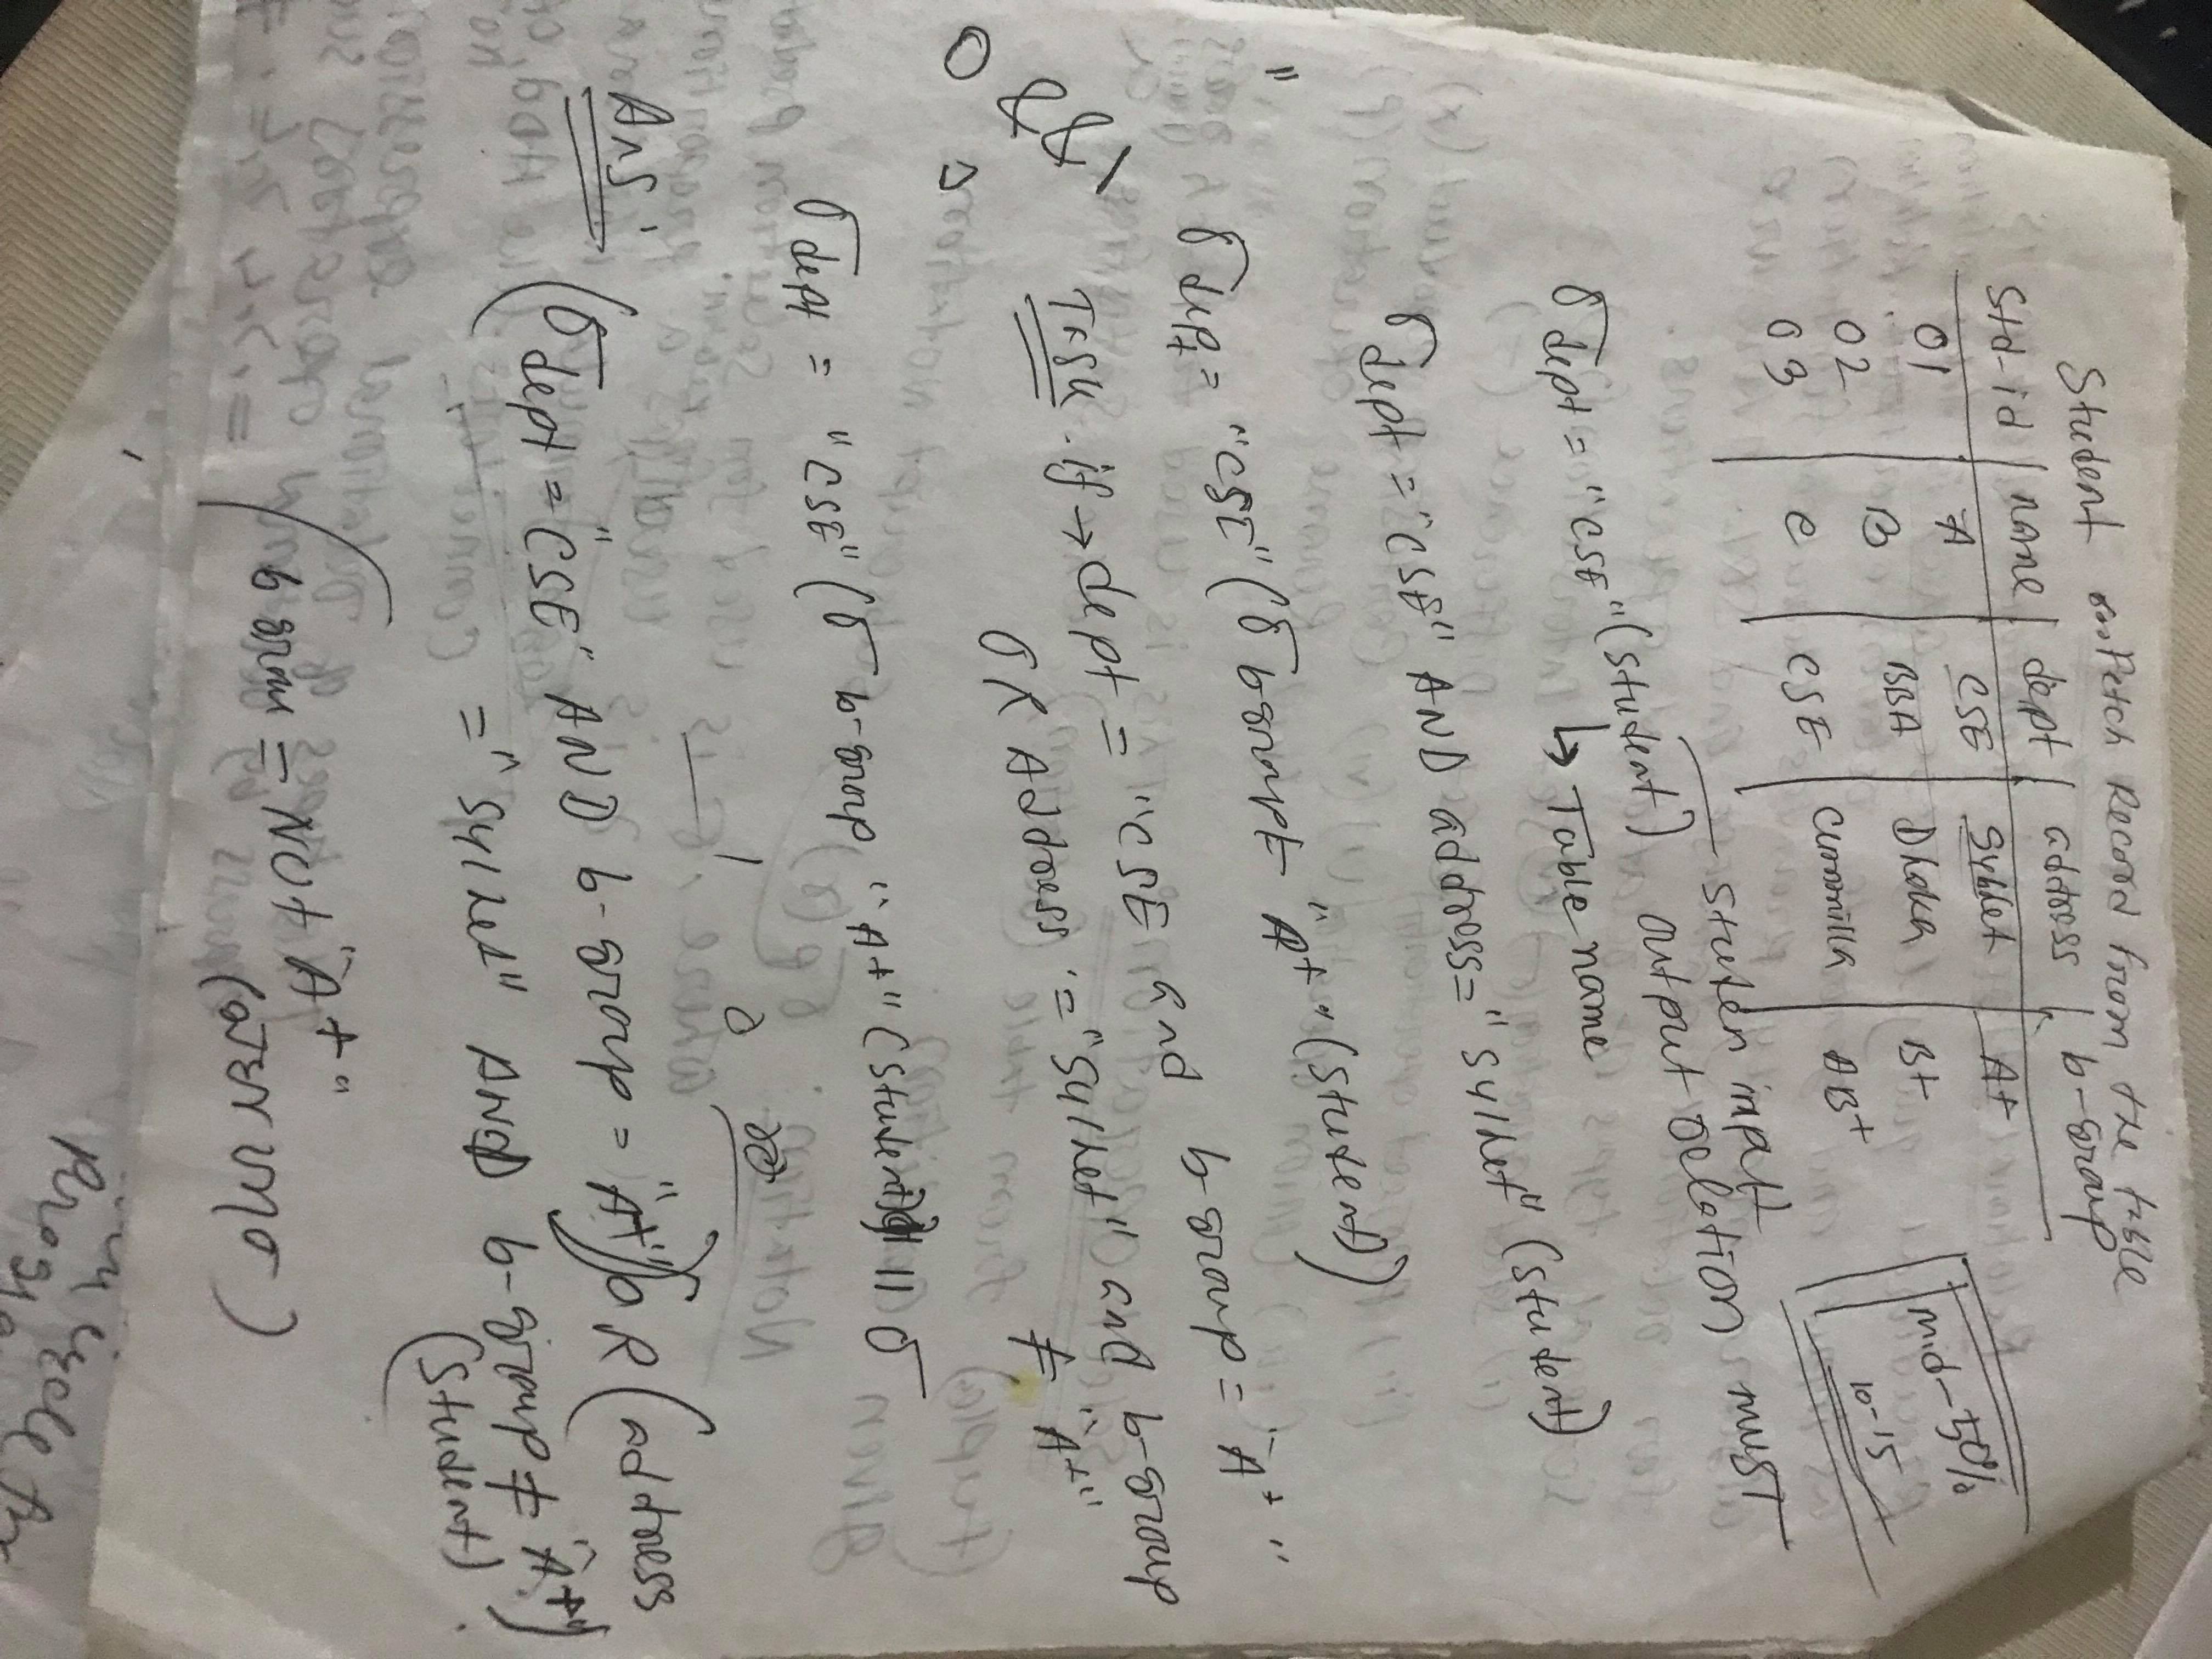 Student Fetch Record from the table
Std-id | name | dept | address | b-group
01 A CSE Sylhet A+
02 B BBA Dhaka B+
03 C CSE Cummilla AB+
mid-50%
10-15
Studen input
output relation must
σ dept = "CSE" (student)
↳ Table name
σ dept = "CSE" AND address = "Sylhet" (student)
"
σ dept = "CSE" (σ b-group "A+" (student))
0 && 1
Task . if → dept = "CSE and b-group = "A+"
OR Address = "Sylhet" and b-group
≠ "A+"
σ dept = "CSE" (σ b-group "A+" (student) || σ
1 0
Ans:
(σ dept = "CSE" AND b-group = "A+") OR (address
= "Sylhet" AND b-group ≠ "A+")
(student)
b group = NOT "A+"
circle for